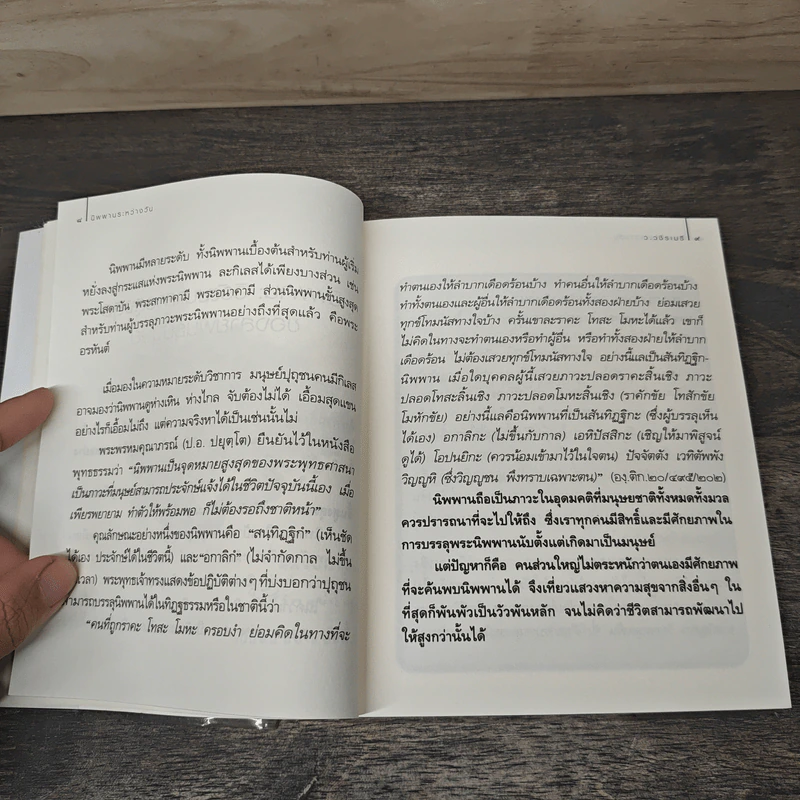 ๘ นิพพานระหว่างวัน
นิพพานมีหลายระดับ ทั้งนิพพานเบื้องต้นสำหรับท่านผู้เริ่ม
หยั่งลงสู่กระแสแห่งพระนิพพาน ละกิเลสได้เพียงบางส่วน เช่น
พระโสดาบัน พระสกทาคามี พระอนาคามี ส่วนนิพพานขั้นสูงสุด
สำหรับท่านผู้บรรลุภาวะพระนิพพานอย่างถึงที่สุดแล้ว คือพระ
อรหันต์
เมื่อมองในความหมายระดับวิชาการ มนุษย์ปุถุชนคนมีกิเลส
อาจมองว่านิพพานดูห่างเหิน ห่างไกล จับต้องไม่ได้ เอื้อมสุดแขน
อย่างไรก็เอื้อมไม่ถึง แต่ความจริงหาได้เป็นเช่นนั้นไม่
พระพรหมคุณาภรณ์ (ป.อ. ปยุตฺโต) ยืนยันไว้ในหนังสือ
พุทธธรรมว่า “นิพพานเป็นจุดหมายสูงสุดของพระพุทธศาสนา
เป็นภาวะที่มนุษย์สามารถประจักษ์แจ้งได้ในชีวิตปัจจุบันนี้เอง เมื่อ
เพียรพยายาม ทำตัวให้พร้อมพอ ก็ไม่ต้องรอถึงชาติหน้า”
คุณลักษณะอย่างหนึ่งของนิพพานคือ “สนฺทิฏฺฐิกํ” (เห็นชัด
ได้เอง ประจักษ์ได้ในชีวิตนี้) และ“อกาลิกํ” (ไม่จำกัดกาล ไม่ขึ้น
เวลา) พระพุทธเจ้าทรงแสดงข้อปฏิบัติต่างๆ ที่บ่งบอกว่าปุถุชน
สามารถบรรลุนิพพานได้ในทิฏฐธรรมหรือในชาตินี้ว่า
“คนที่ถูกราคะ โทสะ โมหะ ครอบงำ ย่อมคิดในทางที่จะ
ว.วชิรเมธี ๙
ทำตนเองให้ลำบากเดือดร้อนบ้าง ทำคนอื่นให้ลำบากเดือดร้อนบ้าง
ทำทั้งตนเองและผู้อื่นให้ลำบากเดือดร้อนทั้งสองฝ่ายบ้าง ย่อมเสวย
ทุกข์โทมนัสทางใจบ้าง ครั้นเขาละราคะ โทสะ โมหะได้แล้ว เขาก็
ไม่คิดในทางจะทำตนเองหรือทำผู้อื่น หรือทำทั้งสองฝ่ายให้ลำบาก
เดือดร้อน ไม่ต้องเสวยทุกข์โทมนัสทางใจ อย่างนี้แลเป็นสันทิฏฐิก-
นิพพาน เมื่อใดบุคคลผู้นี้เสวยภาวะปลอดราคะสิ้นเชิง ภาวะ
ปลอดโทสะสิ้นเชิง ภาวะปลอดโมหะสิ้นเชิง (ราคักขัย โทสักขัย
โมหักขัย) อย่างนี้แลคือนิพพานที่เป็นสันทิฏฐิกะ (ซึ่งผู้บรรลุเห็น
ได้เอง) อกาลิกะ (ไม่ขึ้นกับกาล) เอหิปัสสิกะ (เชิญให้มาพิสูจน์
ดูได้) โอปนยิกะ (ควรน้อมเข้ามาไว้ในใจตน) ปัจจัตตัง เวทิตัพพัง
วิญญูหิ (ซึ่งวิญญูชน พึงทราบเฉพาะตน)” (องฺ.ติก.๒๐/๔๙๕/๒๐๒)
นิพพานถือเป็นภาวะในอุดมคติที่มนุษยชาติทั้งหมดทั้งมวล
ควรปรารถนาที่จะไปให้ถึง ซึ่งเราทุกคนมีสิทธิ์และมีศักยภาพใน
การบรรลุพระนิพพานนับตั้งแต่เกิดมาเป็นมนุษย์
แต่ปัญหาก็คือ คนส่วนใหญ่ไม่ตระหนักว่าตนเองมีศักยภาพ
ที่จะค้นพบนิพพานได้ จึงเที่ยวแสวงหาความสุขจากสิ่งอื่นๆ ใน
ที่สุดก็พันพัวเป็นวัวพันหลัก จนไม่คิดว่าชีวิตสามารถพัฒนาไป
ให้สูงกว่านั้นได้